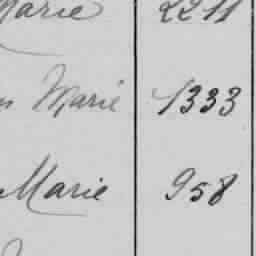 Marie 2211
Marie 1333
Marie 958